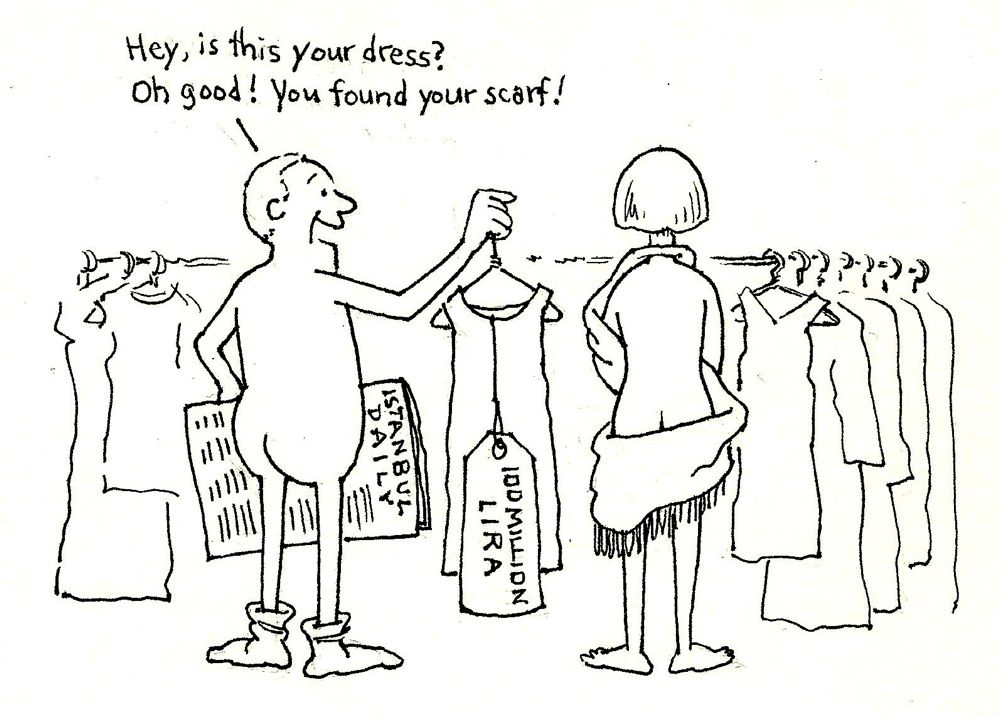 Hey, is this your dress?
Oh good! You found your scarf!
ISTANBUL
DAILY
100 MILLION
LIRA